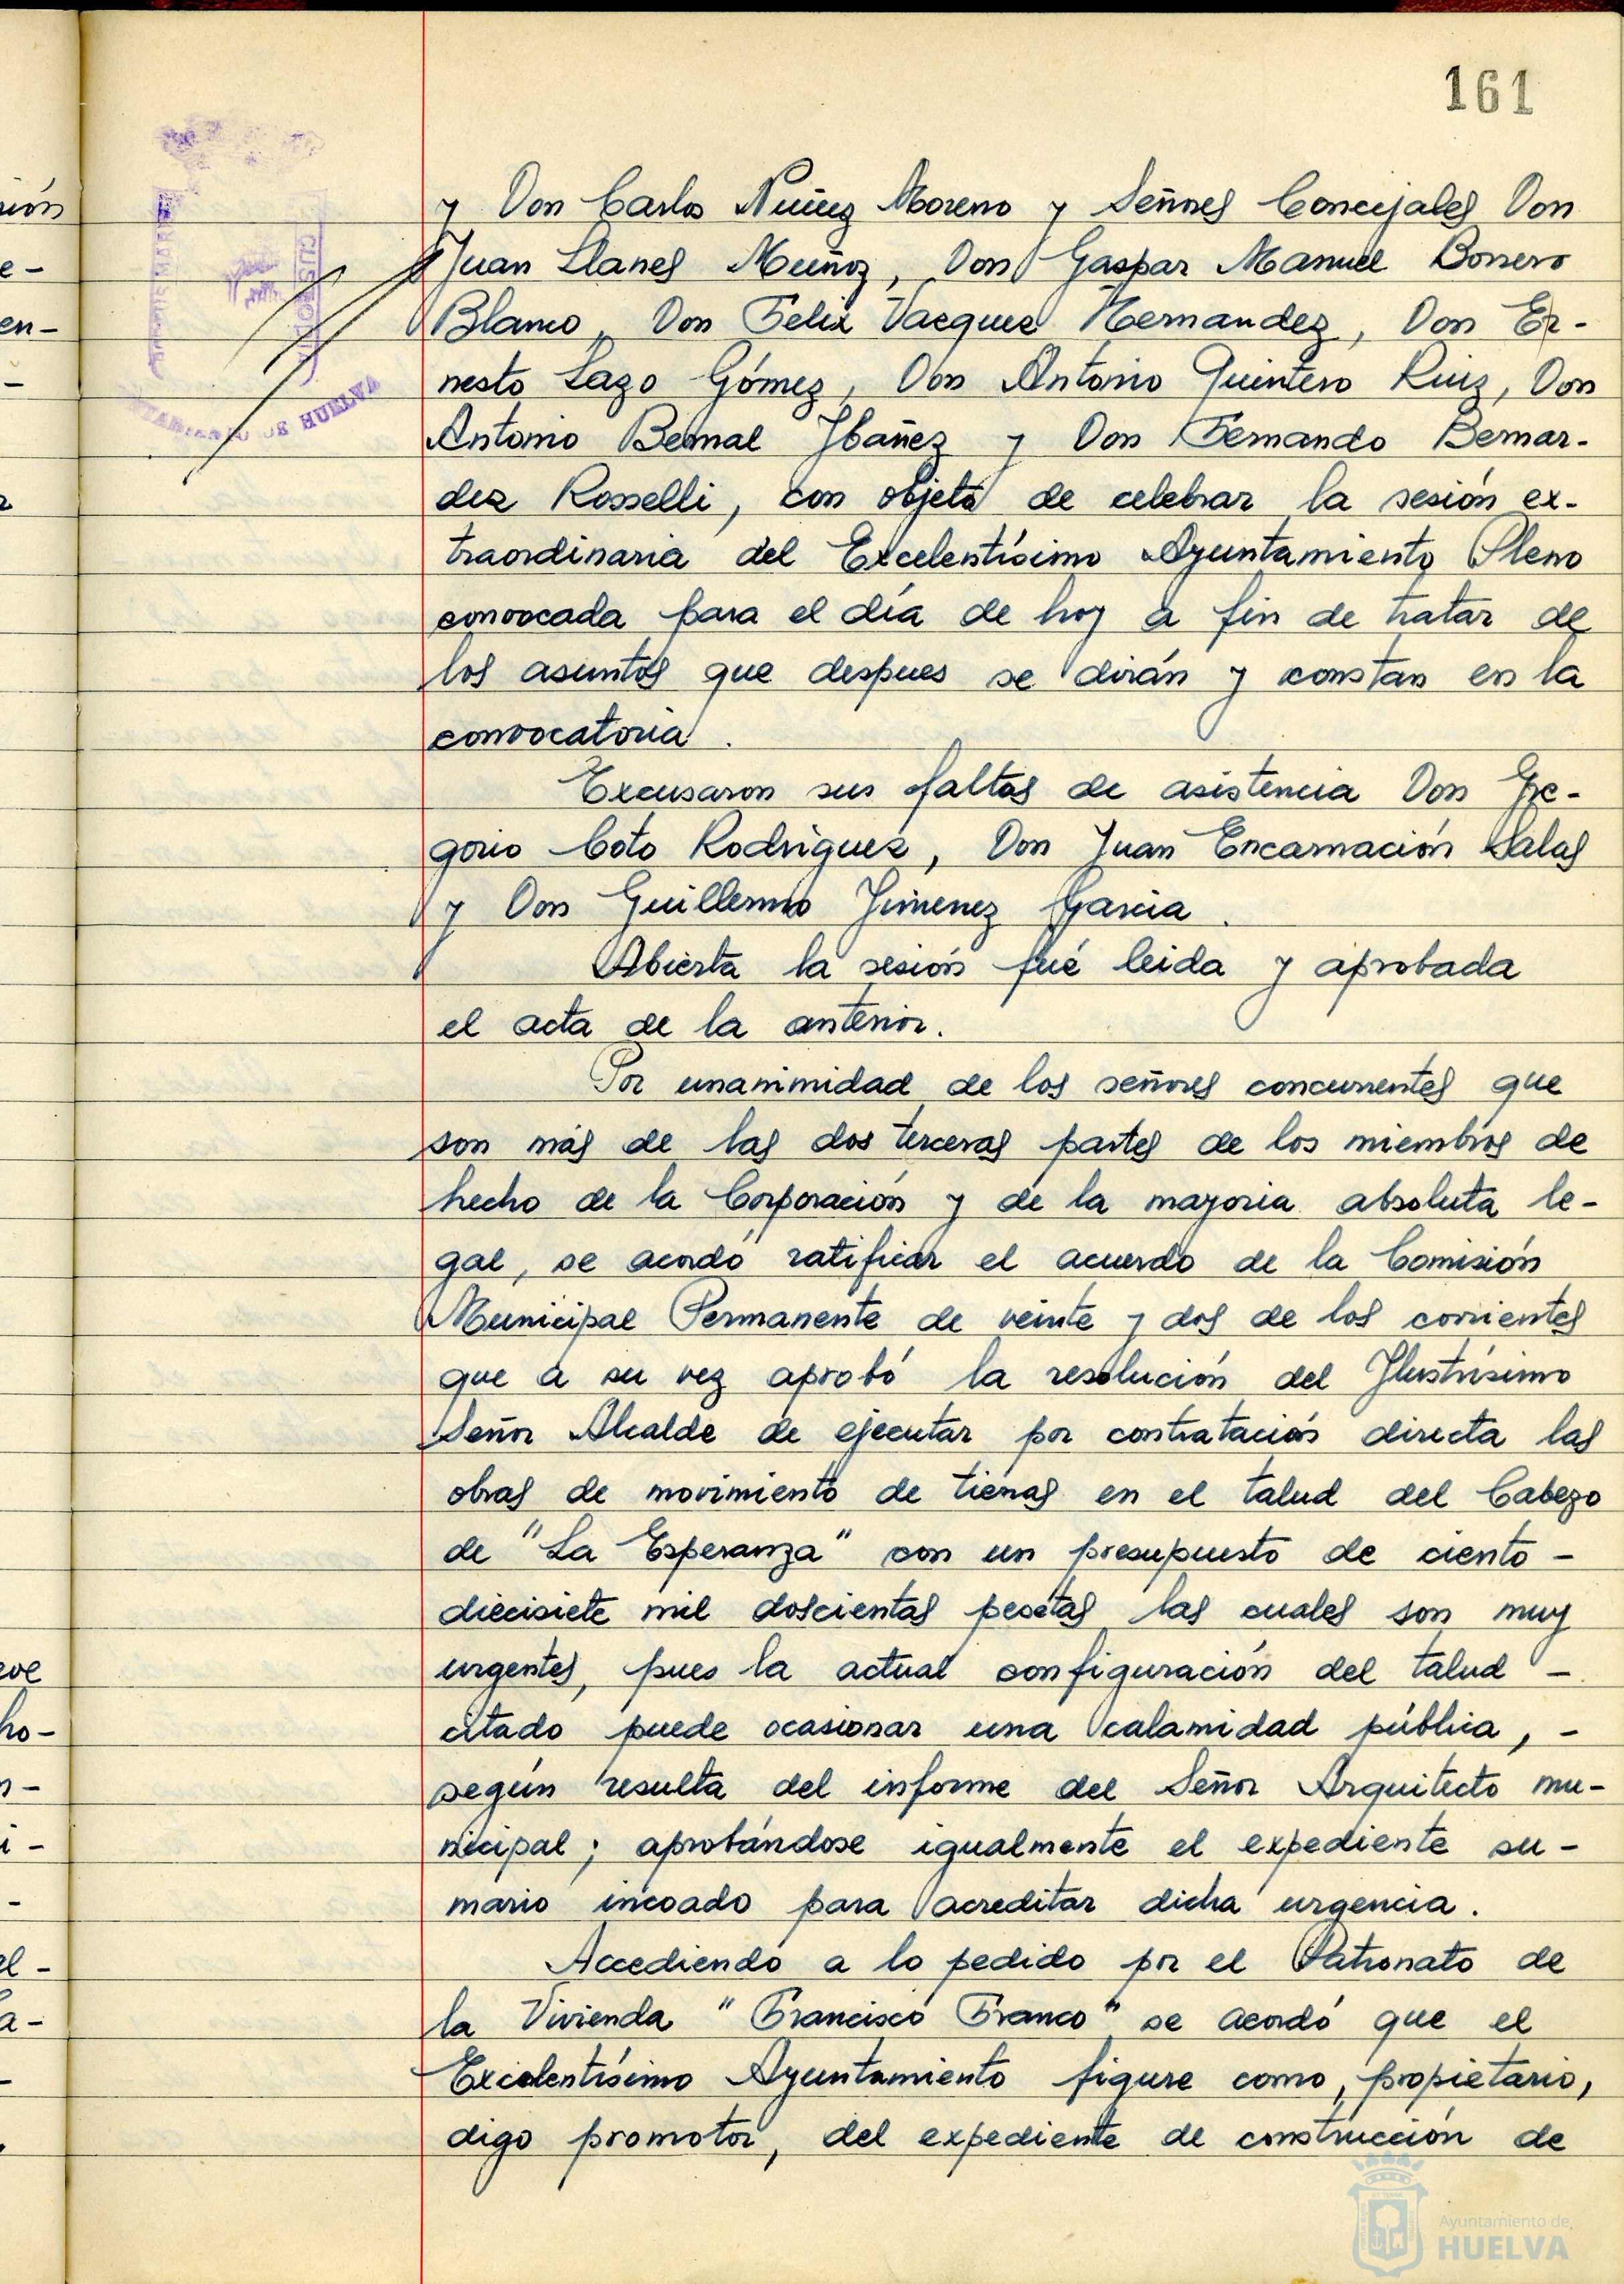 161
y Don Carlos Núñez Moreno y Señores Concejales Don
Juan Llanes Muñoz, Don Gaspar Manuel Borrero
Blanco, Don Felix Vazquez Hernandez, Don Er-
nesto Lazo Gómez, Don Antonio Quintero Ruiz, Don
Antonio Bernal Ybañez y Don Fernando Bernar-
dez Rosselli, con objeto de celebrar la sesión ex-
traordinaria del Excelentísimo Ayuntamiento Pleno
convocada para el día de hoy a fin de tratar de
los asuntos que despues se dirán y constan en la
convocatoria.
Excusaron sus faltas de asistencia Don Gre-
gorio Coto Rodriguez, Don Juan Encarnación Salas
y Don Guillermo Jimenez Garcia.
Abierta la sesión fué leida y aprobada
el acta de la anterior.
Por unanimidad de los señores concurrentes que
son más de las dos terceras partes de los miembros de
hecho de la Corporación y de la mayoria absoluta le-
gal, se acordó ratificar el acuerdo de la Comisión
Municipal Permanente de veinte y dos de los corrientes
que a su vez aprobó la resolución del Ilustrísimo
Señor Alcalde de ejecutar por contratación directa las
obras de movimiento de tierras en el talud del Cabezo
de "La Esperanza" con un presupuesto de ciento -
diecisiete mil doscientas pesetas las cuales son muy
urgentes, pues la actual configuración del talud -
citado puede ocasionar una calamidad pública, -
según resulta del informe del Señor Arquitecto mu-
nicipal; aprobándose igualmente el expediente su-
mario incoado para acreditar dicha urgencia.
Accediendo a lo pedido por el Patronato de
la Vivienda "Francisco Franco" se acordó que el
Excelentísimo Ayuntamiento figure como, propietario,
digo promotor, del expediente de construcción de
DE HUELVA
Ayuntamiento de
HUELVA